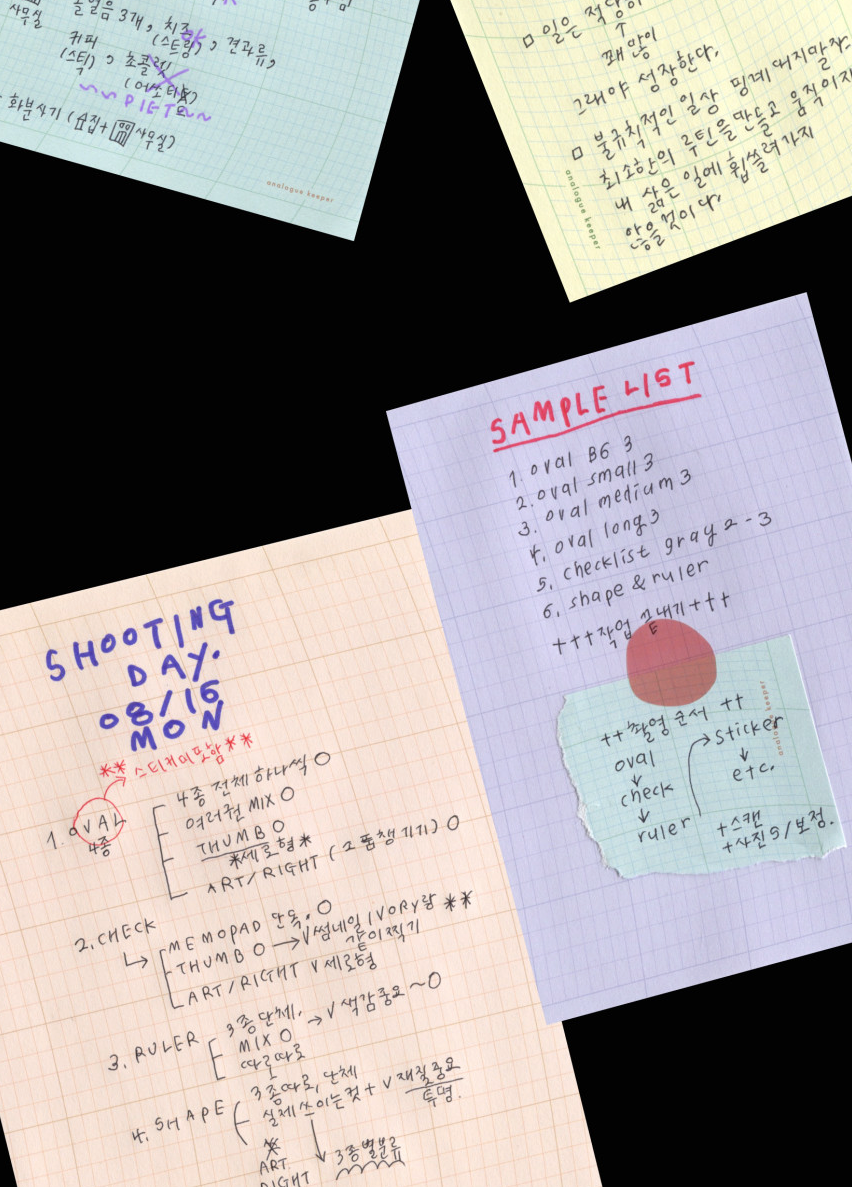 사무실
얼음 3개, 치즈
(스트링), 견과류,
커피
(스틱), 초콜릿
~~PIET~~
화분사기 (집+사무실)
analogue keeper
□ 일은 적당히
꽤 많이
그래야 성장한다.
□ 불규칙적인 일상 핑계 대지말자.
최소한의 루틴을 만들고 움직이자
내 삶은 일에 휩쓸려가지
않을것이다.
analogue keeper
SAMPLE LIST
1. oval B6 3
2. oval small 3
3. oval medium 3
4. oval long 3
5. checklist gray 2-3
6. shape & ruler
+++작업 끝내기+++
++촬영 순서 ++
oval
check
ruler
sticker
etc.
+스캔
+사진 5/보정.
analogue keeper
SHOOTING
DAY.
08/16
MON
** 스티커미포함**
1. OVAL
4종
4종 전체 하나씩 O
여러권 MIX O
THUMB O
*세로형*
ART/RIGHT (소품챙기기) O
2. CHECK
MEMOPAD 단독. O
THUMB O → V썸네일 IVORY랑 **
같이찍기
ART/RIGHT V세로형
3. RULER
3종단체, → V색감중요~O
MIX O
따로따로
4. SHAPE
3종따로, 단체
실제 쓰이는컷 + V 재질중요
투명.
ART
RIGHT
3종별분류